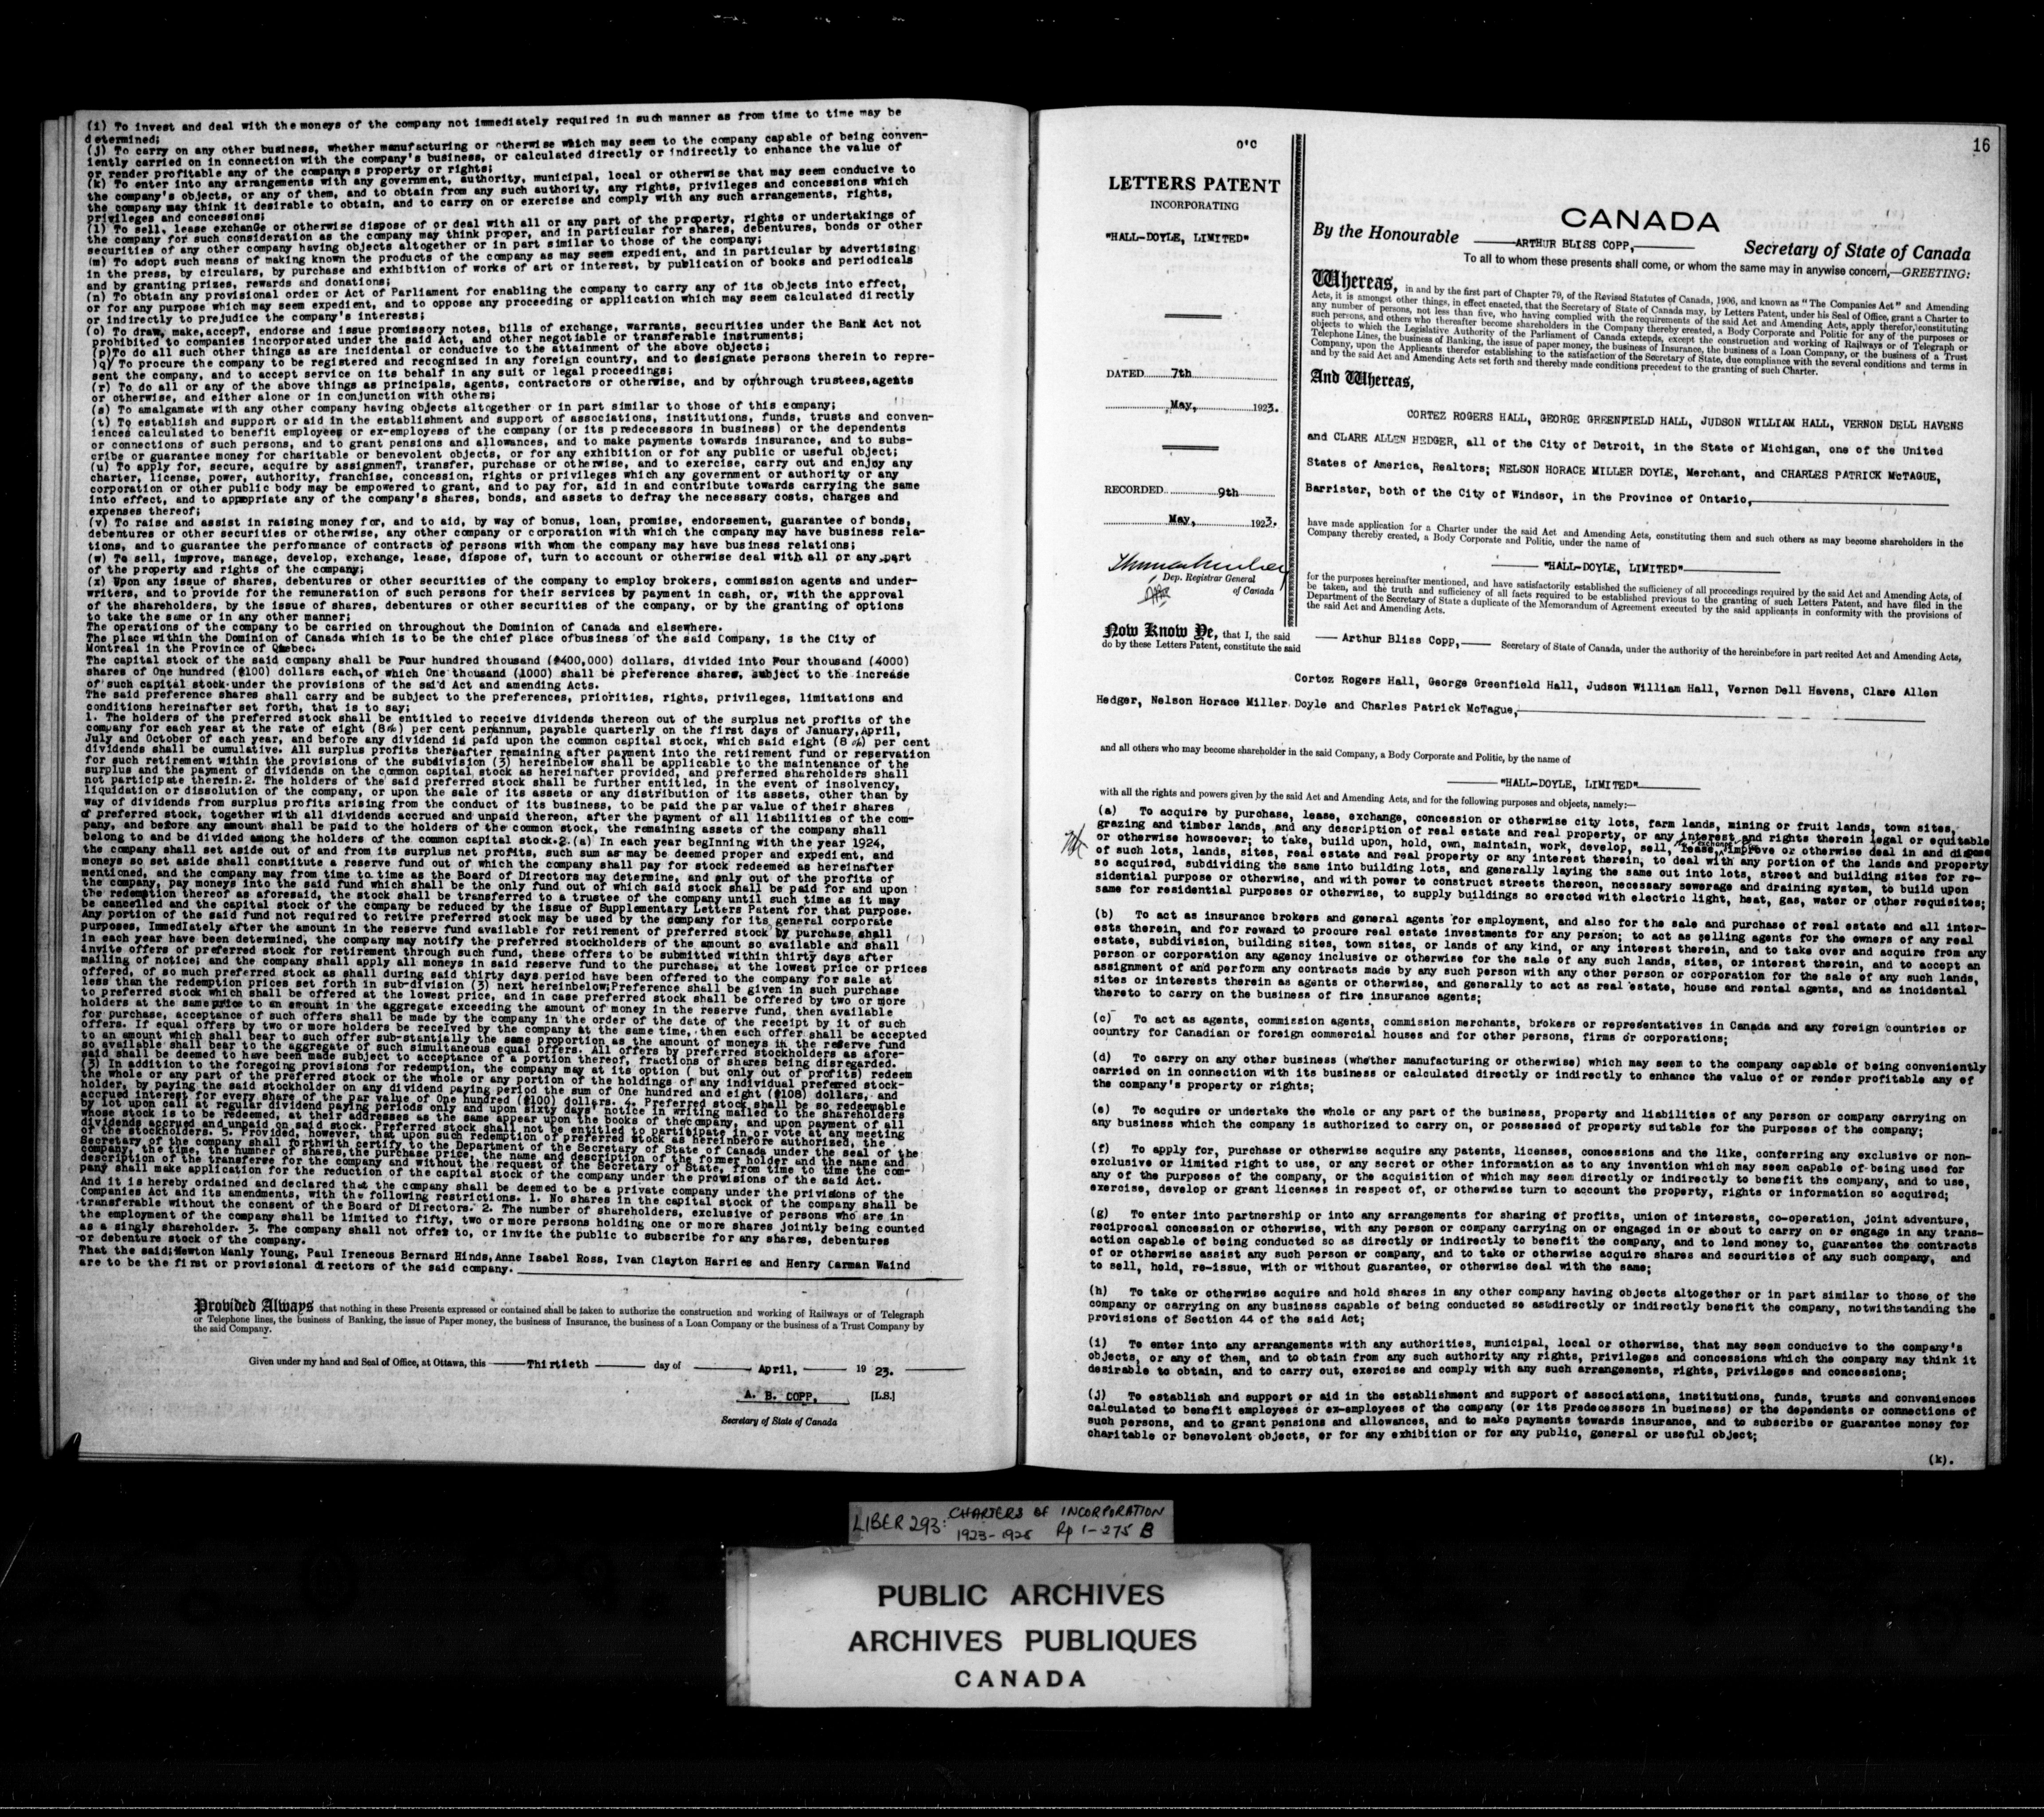 (i) To invest and deal with the moneys of the company not immediately required in such manner as from time to time may be
determined;
(j) To carry on any other business, whether manufacturing or otherwise which may seem to the company capable of being conven-
iently carried on in connection with the company's business, or calculated directly or indirectly to enhance the value of
or render profitable any of the company's property or rights;
(k) To enter into any arrangements with any government, authority, municipal, local or otherwise that may seem conducive to
the company's objects, or any of them, and to obtain from any such authority, any rights, privileges and concessions which
the company may think it desirable to obtain, and to carry on or exercise and comply with any such arrangements, rights,
privileges and concessions;
(l) To sell, lease exchanGe or otherwise dispose of or deal with all or any part of the property, rights or undertakings of
the company for such consideration as the company may think proper, and in particular for shares, debentures, bonds or other
securities of any other company having objects altogether or in part similar to those of the company;
(m) To adopt such means of making known the products of the company as may seem expedient, and in particular by advertising
in the press, by circulars, by purchase and exhibition of works of art or interest, by publication of books and periodicals
and by granting prizes, rewards and donations;
(n) To obtain any provisional order or Act of Parliament for enabling the company to carry any of its objects into effect,
or for any purpose which may seem expedient, and to oppose any proceeding or application which may seem calculated directly
or indirectly to prejudice the company's interests;
(o) To draw, make, accepT, endorse and issue promissory notes, bills of exchange, warrants, securities under the Bank Act not
prohibited to companies incorporated under the said Act, and other negotiable or transferable instruments;
(p)To do all such other things as are incidental or conducive to the attainment of the above objects;
)q) To procure the company to be registered and recognised in any foreign country, and to designate persons therein to repre-
sent the company, and to accept service on its behalf in any suit or legal proceedings;
(r) To do all or any of the above things as principals, agents, contractors or otherwise, and by or/through trustees,agents
or otherwise, and either alone or in conjunction with others;
(s) To amalgamate with any other company having objects altogether or in part similar to those of this company;
(t) To establish and support or aid in the establishment and support of associations, institutions, funds, trusts and conven-
iences calculated to benefit employees or ex-employess of the company (or its predecessors in business) or the dependents
or connections of such persons, and to grant pensions and allowances, and to make payments towards insurance, and to subs-
cribe or guarantee money for charitable or benevolent objects, or for any exhibition or for any public or useful object;
(u) To apply for, secure, acquire by assignmenT, transfer, purchase or otherwise, and to exercise, carry out and enjoy any
charter, license, power, authority, franchise, concession, rights or privileges which any government or authority or any
corporation or other public body may be empowered to grant, and to pay for, aid in and contribute towards carrying the same
into effect, and to appropriate any of the company's shares, bonds, and assets to defray the necessary costs, charges and
expenses thereof;
(v) To raise and assist in raising money for, and to aid, by way of bonus, loan, promise, endorsement, guarantee of bonds,
debentures or other securities or otherwise, any other company or corporation with which the company may have business rela-
tions, and to guarantee the performance of contracts of persons with whom the company may have business relations;
(w) To sell, improve, manage, develop, exchange, lease, dispose of, turn to account or otherwise deal with all or any part
of the property and rights of the company;
(x) Upon any issue of shares, debentures or other securities of the company to employ brokers, commission agents and under-
writers, and to provide for the remuneration of such persons for their services by payment in cash, or, with the approval
of the shareholders, by the issue of shares, debentures or other securities of the company, or by the granting of options
to take the same or in any other manner;
The operations of the company to be carried on throughout the Dominion of Canada and elsewhere.
The place within the Dominion of Canada which is to be the chief place ofbusiness of the said Company, is the City of
Montreal in the Province of Quebec.
The capital stock of the said company shall be Four hundred thousand ($400,000) dollars, divided into Four thousand (4000)
shares of One hundred ($100) dollars each, of which One thousand (1000) shall be preference shares, subject to the increase
of such capital stock under the provisions of the said Act and amending Acts.
The said preference shares shall carry and be subject to the preferences, priorities, rights, privileges, limitations and
conditions hereinafter set forth, that is to say;
1. The holders of the preferred stock shall be entitled to receive dividends thereon out of the surplus net profits of the
company for each year at the rate of eight (8%) per cent perannum, payable quarterly on the first days of January,April,
July and October of each year, and before any dividend id paid upon the common capital stock, which said eight (8%) per cent
dividends shall be cumulative. All surplus profits thereafter remaining after payment into the retirement fund or reservation
for such retirement within the provisions of the subdivision (3) hereinbelow shall be applicable to the maintenance of the
surplus and the payment of dividends on the common capital stock as hereinafter provided, and preferred shareholders shall
not participate therein.2. The holders of the said preferred stock shall be further entitled, in the event of insolvency,
liquidation or dissolution of the company, or upon the sale of its assets or any distribution of its assets, other than by
way of dividends from surplus profits arising from the conduct of its business, to be paid the par value of their shares
of preferred stock, together with all dividends accrued and unpaid thereon, after the payment of all liabilities of the com-
pany, and before any amount shall be paid to the holders of the common stock, the remaining assets of the company shall
belong to and be divided among the holders of the common capital stock.2.(a) In each year begInning with the year 1924,
the company shall set aside out of and from its surplus net profits, such sum as may be deemed proper and expedient, and
moneys so set aside shall constitute a reserve fund out of which the company shall pay for stock redeemed as hereinafter
mentioned, and the company may from time to time as the Board of Directors may determine, and only out of the profits of
the company, pay moneys into the said fund which shall be the only fund out of which said stock shall be paid for and upon
the redemption thereof as aforesaid, the stock shall be transferred to a trustee of the company until such time as it may
be cancelled and the capital stock of the company be reduced by the issue of Supplementary Letters Patent for that purpose.
Any portion of the said fund not required to retire preferred stock may be used by the company for its general corporate
purposes, ImmedIately after the amount in the reserve fund available for retirement of preferred stock by purchase shall
in each year have been determined, the company may notify the preferred stockholders of the amount so available and shall
invite offers of preferred stock for retirement through such fund, these offers to be submitted within thirty days after
mailing of notice; and the company shall apply all moneys in said reserve fund to the purchase, at the lowest price or prices
offered, of so much preferred stock as shall during said thirty days period have been offered to the company for sale at
less than the redemption prices set forth in sub-division (3) next hereinbelow;Preference shall be given in such purchase
to preferred stock which shall be offered at the lowest price, and in case preferred stock shall be offered by two or more
holders at the same price to an amount in the aggregate exceeding the amount of money in the reserve fund, then available
for purchase, acceptance of such offers shall be made by the company in the order of the date of the receipt by it of such
offers. If equal offers by two or more holders be received by the company at the same time, then each offer shall be accepted
to an amount which shall bear to such offer sub-stantially the same proportion as the amount of moneys in the reserve fund
so available shall bear to the aggregate of such simultaneous equal offers. All offers by preferred stockholders as afore-
said shall be deemed to have been made subject to acceptance of a portion thereof, fractions of shares being disregarded.
(3) In addition to the foregoing provisions for redemption, the company may at its option ( but only out of profits) redeem
the whole or any part of the preferred stock or the whole or any portion of the holdings of any individual preferred stock-
holder, by paying the said stockholder on any dividend paying period the sum of One hundred and eight ($108) dollars, and
accrued interest for every share of the par value of One hundred ($100) dollars. 4. Preferred stock shall be so redeemable
by lot upon call at regular dividend paying periods only and upon sixty days' notice in writing mailed to the shareholders
whose stock is to be redeemed, at their addresses as the same appear upon the books of thecompany, and upon payment of all
dividends accrued and unpaid on said stock. Preferred stock shall not be entitled to participate in or vote at any meeting
of the stockholders. 5. Provided, however, that upon such redemption of preferred stock as hereinbefore authorized, the
Secretary of the company shall forthwith certify to the Department of the Secretary of State of Canada under the seal of the
company, the time, the number of shares, the purchase price, the name and description of the former holder and the name and
description of the transferee for the company and without the request of the Secretary of State, from time to time the com-
pany shall make application for the reduction of the capital stock of the company under the provisions of the said Act.
And it is hereby ordained and declared that the company shall be deemed to be a private company under the privisions of the
Companies Act and its amendments, with the following restrictions. 1. No shares in the capital stock of the company shall be
transferable without the consent of the Board of Directors. 2. The number of shareholders, exclusive of persons who are in
the employment of the company shall be limited to fifty, two or more persons holding one or more shares jointly being counted
as a singly shareholder. 3. The company shall not offer to, or invite the public to subscribe for any shares, debentures
or debenture stock of the company.
That the said;Newton Manly Young, Paul Ireneous Bernard Hinds,Anne Isabel Ross, Ivan Clayton Harries and Henry Carman Waind
are to be the first or provisional directors of the said company.
Provided Always that nothing in these Presents expressed or contained shall be taken to authorize the construction and working of Railways or of Telegraph
or Telephone lines, the business of Banking, the issue of Paper money, the business of Insurance, the business of a Loan Company or the business of a Trust Company by
the said Company.
Given under my hand and Seal of Office, at Ottawa, this Thirtieth day of April, 19 23.
A. B. COPP, [L.S.]
Secretary of State of Canada
16
O'C
LETTERS PATENT
INCORPORATING
"HALL-DOYLE, LIMITED"
DATED 7th
May, 1923.
RECORDED 9th
May, 1923.
Dep. Registrar General
of Canada
CANADA
By the Honourable ARTHUR BLISS COPP, Secretary of State of Canada
To all to whom these presents shall come, or whom the same may in anywise concern,—GREETING:
Whereas, in and by the first part of Chapter 79, of the Revised Statutes of Canada, 1906, and known as "The Companies Act" and Amending
Acts, it is amongst other things, in effect enacted, that the Secretary of State of Canada may, by Letters Patent, under his Seal of Office, grant a Charter to
any number of persons, not less than five, who having complied with the requirements of the said Act and Amending Acts, apply therefor, constituting
such persons, and others who thereafter become shareholders in the Company thereby created, a Body Corporate and Politic for any of the purposes or
objects to which the Legislative Authority of the Parliament of Canada extends, except the construction and working of Railways or of Telegraph or
Telephone Lines, the business of Banking, the issue of paper money, the business of Insurance, the business of a Loan Company, or the business of a Trust
Company, upon the Applicants therefor establishing to the satisfaction of the Secretary of State, due compliance with the several conditions and terms in
and by the said Act and Amending Acts set forth and thereby made conditions precedent to the granting of such Charter.
And Whereas,
CORTEZ ROGERS HALL, GEORGE GREENFIELD HALL, JUDSON WILLIAM HALL, VERNON DELL HAVENS
and CLARE ALLEN HEDGER, all of the City of Detroit, in the State of Michigan, one of the United
States of America, Realtors; NELSON HORACE MILLER DOYLE, Merchant, and CHARLES PATRICK McTAGUE,
Barrister, both of the City of Windsor, in the Province of Ontario,
have made application for a Charter under the said Act and Amending Acts, constituting them and such others as may become shareholders in the
Company thereby created, a Body Corporate and Politic, under the name of
"HALL-DOYLE, LIMITED"
for the purposes hereinafter mentioned, and have satisfactorily established the sufficiency of all proceedings required by the said Act and Amending Acts, of
be taken, and the truth and sufficiency of all facts required to be established previous to the granting of such Letters Patent, and have filed in the
Department of the Secretary of State a duplicate of the Memorandum of Agreement executed by the said applicants in conformity with the provisions of
the said Act and Amending Acts.
Now Know Ye, that I, the said Arthur Bliss Copp, Secretary of State of Canada, under the authority of the hereinbefore in part recited Act and Amending Acts,
do by these Letters Patent, constitute the said
Cortez Rogers Hall, George Greenfield Hall, Judson William Hall, Vernon Dell Havens, Clare Allen
Hedger, Nelson Horace Miller Doyle and Charles Patrick McTague,
and all others who may become shareholder in the said Company, a Body Corporate and Politic, by the name of
"HALL-DOYLE, LIMITED"
with all the rights and powers given by the said Act and Amending Acts, and for the following purposes and objects, namely:—
(a) To acquire by purchase, lease, exchange, concession or otherwise city lots, farm lands, mining or fruit lands, town sites,
grazing and timber lands, and any description of real estate and real property, or any interest and rights therein legal or equitable
or otherwise howsoever; to take, build upon, hold, own, maintain, work, develop, sell, lease, exchange improve or otherwise deal in and dispose
of such lots, lands, sites, real estate and real property or any interest therein, to deal with any portion of the lands and property
so acquired, subdividing the same into building lots, and generally laying the same out into lots, street and building sites for re-
sidential purpose or otherwise, and with power to construct streets thereon, necessary sewerage and draining system, to build upon
same for residential purposes or otherwise, to supply buildings so erected with electric light, heat, gas, water or other requisites;
(b) To act as insurance brokers and general agents for employment, and also for the sale and purchase of real estate and all inter-
ests therein, and for reward to procure real estate investments for any person; to act as selling agents for the owners of any real
estate, subdivision, building sites, town sites, or lands of any kind, or any interest therein, and to take over and acquire from any
person or corporation any agency inclusive or otherwise for the sale of any such lands, sites, or interest therein, and to accept an
assignment of and perform any contracts made by any such person with any other person or corporation for the sale of any such lands,
sites or interests therein as agents or otherwise, and generally to act as real estate, house and rental agents, and as incidental
thereto to carry on the business of fire insurance agents;
(c) To act as agents, commission agents, commission merchants, brokers or representatives in Canada and any foreign countries or
country for Canadian or foreign commercial houses and for other persons, firms or corporations;
(d) To carry on any other business (whether manufacturing or otherwise) which may seem to the company capable of being conveniently
carried on in connection with its business or calculated directly or indirectly to enhance the value of or render profitable any of
the company's property or rights;
(e) To acquire or undertake the whole or any part of the business, property and liabilities of any person or company carrying on
any business which the company is authorized to carry on, or possessed of property suitable for the purposes of the company;
(f) To apply for, purchase or otherwise acquire any patents, licenses, concessions and the like, conferring any exclusive or non-
exclusive or limited right to use, or any secret or other information as to any invention which may seem capable of being used for
any of the purposes of the company, or the acquisition of which may seem directly or indirectly to benefit the company, and to use,
exercise, develop or grant licenses in respect of, or otherwise turn to account the property, rights or information so acquired;
(g) To enter into partnership or into any arrangements for sharing of profits, union of interests, co-operation, joint adventure,
reciprocal concession or otherwise, with any person or company carrying on or engaged in or about to carry on or engage in any trans-
action capable of being conducted so as directly or indirectly to benefit the company, and to lend money to, guarantee the contracts
of or otherwise assist any such person or company, and to take or otherwise acquire shares and securities of any such company, and
to sell, hold, re-issue, with or without guarantee, or otherwise deal with the same;
(h) To take or otherwise acquire and hold shares in any other company having objects altogether or in part similar to those of the
company or carrying on any business capable of being conducted so asdirectly or indirectly benefit the company, notwithstanding the
provisions of Section 44 of the said Act;
(i) To enter into any arrangements with any authorities, municipal, local or otherwise, that may seem conducive to the company's
objects, or any of them, and to obtain from any such authority any rights, privileges and concessions which the company may think it
desirable to obtain, and to carry out, exercise and comply with any such arrangements, rights, privileges and concessions;
(j) To establish and support or aid in the establishment and support of associations, institutions, funds, trusts and conveniences
calculated to benefit employees or ex-employees of the company (or its predecessors in business) or the dependents or connections of
such persons, and to grant pensions and allowances, and to make payments towards insurance, and to subscribe or guarantee money for
charitable or benevolent objects, or for any exhibition or for any public, general or useful object;
(k).
LIBER 293: CHARTERS OF INCORPORATION
1923-1928 Rp 1-275 B
PUBLIC ARCHIVES
ARCHIVES PUBLIQUES
CANADA